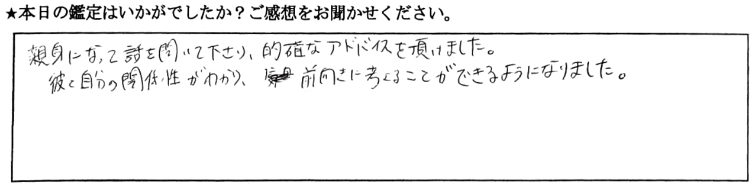 ★本日の鑑定はいかがでしたか？ご感想をお聞かせください。
親身になって話を聞いて下さり、的確なアドバイスを頂けました。
彼と自分の関係性がわかり、前向きに考えることができるようになりました。